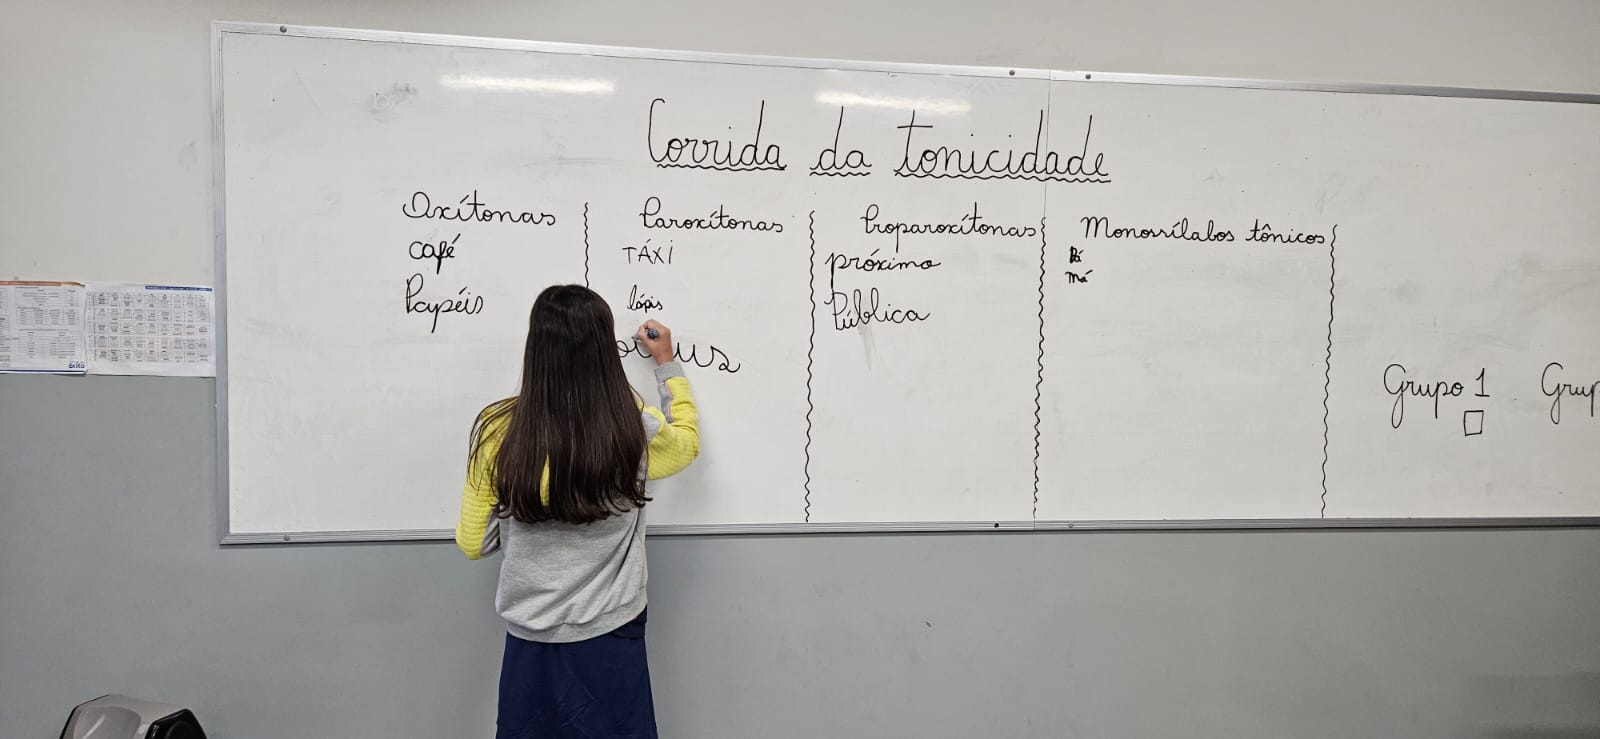 Corrida da tonicidade
Oxítonas
café
Papéis
Paroxítonas
TÁXI
lápis
Proparoxítonas
próximo
Pública
Monossílabos tônicos
Pá
má
Grupo 1
Grup